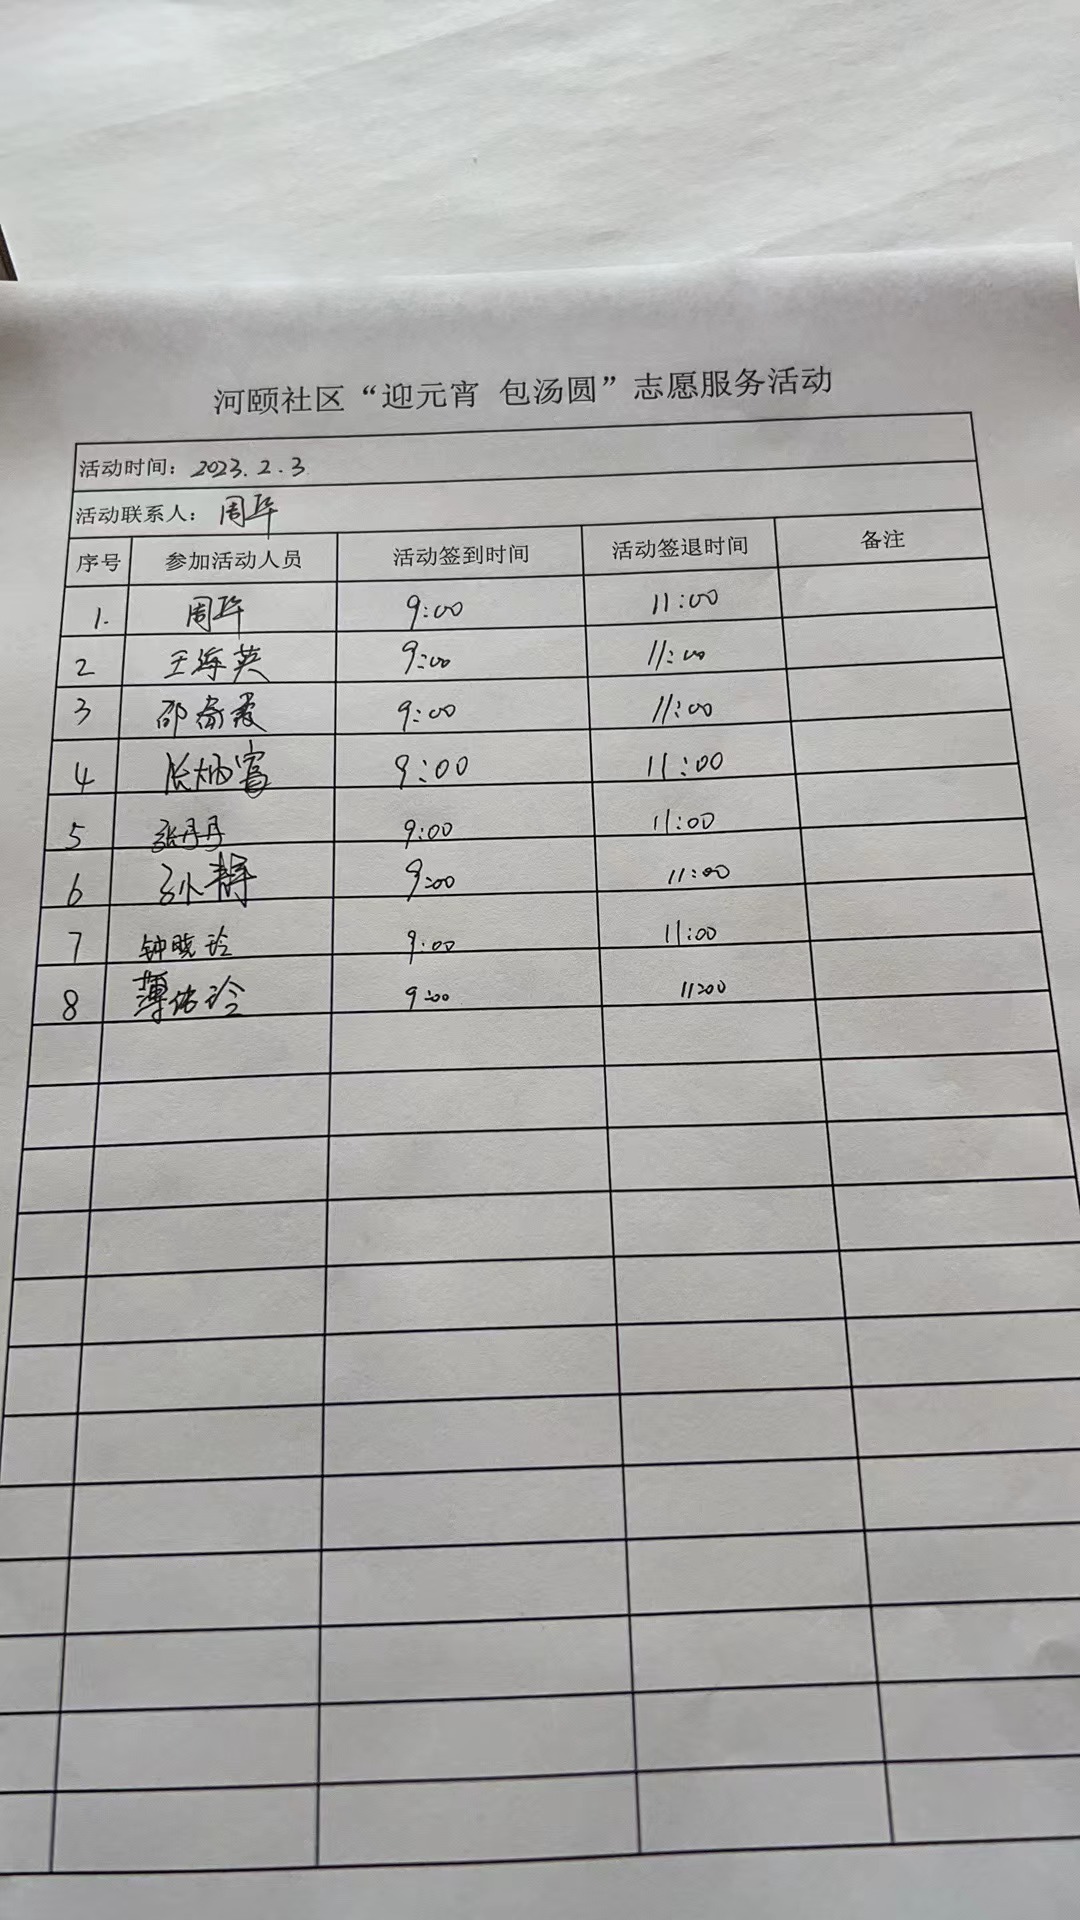 河颐社区“迎元宵 包汤圆”志愿服务活动
活动时间：2023.2.3
活动联系人：周华
序号 参加活动人员 活动签到时间 活动签退时间 备注
1. 周华 9:00 11:00
2 王海英 9:00 11:00
3 邵 霞 9:00 11:00
4 张炳富 9:00 11:00
5 张丹丹 9:00 11:00
6 孙静 9:00 11:00
7 钟晓玲 9:00 11:00
8 薄佑玲 9:00 11:00